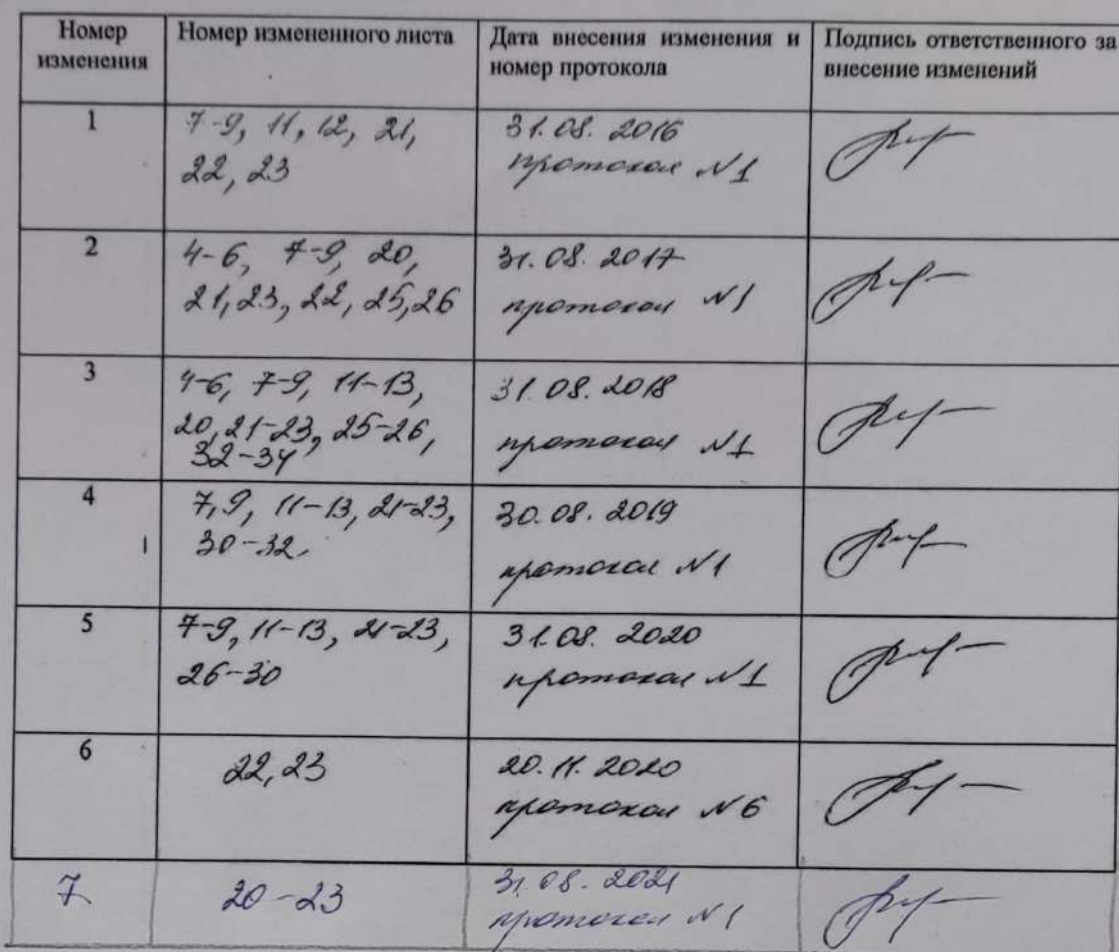 Номер изменения
Номер измененного листа
Дата внесения изменения и номер протокола
Подпись ответственного за внесение изменений
1
7-9, 11, 12, 21,
22, 23
31.08.2016
протокол №1
2
4-6, 7-9, 20,
21, 23, 22, 25, 26
31.08.2017
протокол №1
3
4-6, 7-9, 11-13,
20, 21-23, 25-26,
32-34
31.08.2018
протокол №1
4
7,9, 11-13, 21-23,
30-32.
30.08.2019
протокол №1
5
7-9, 11-13, 21-23,
26-30
31.08.2020
протокол №1
6
22, 23
20.11.2020
протокол №6
7
20-23
31.08.2021
протокол №1